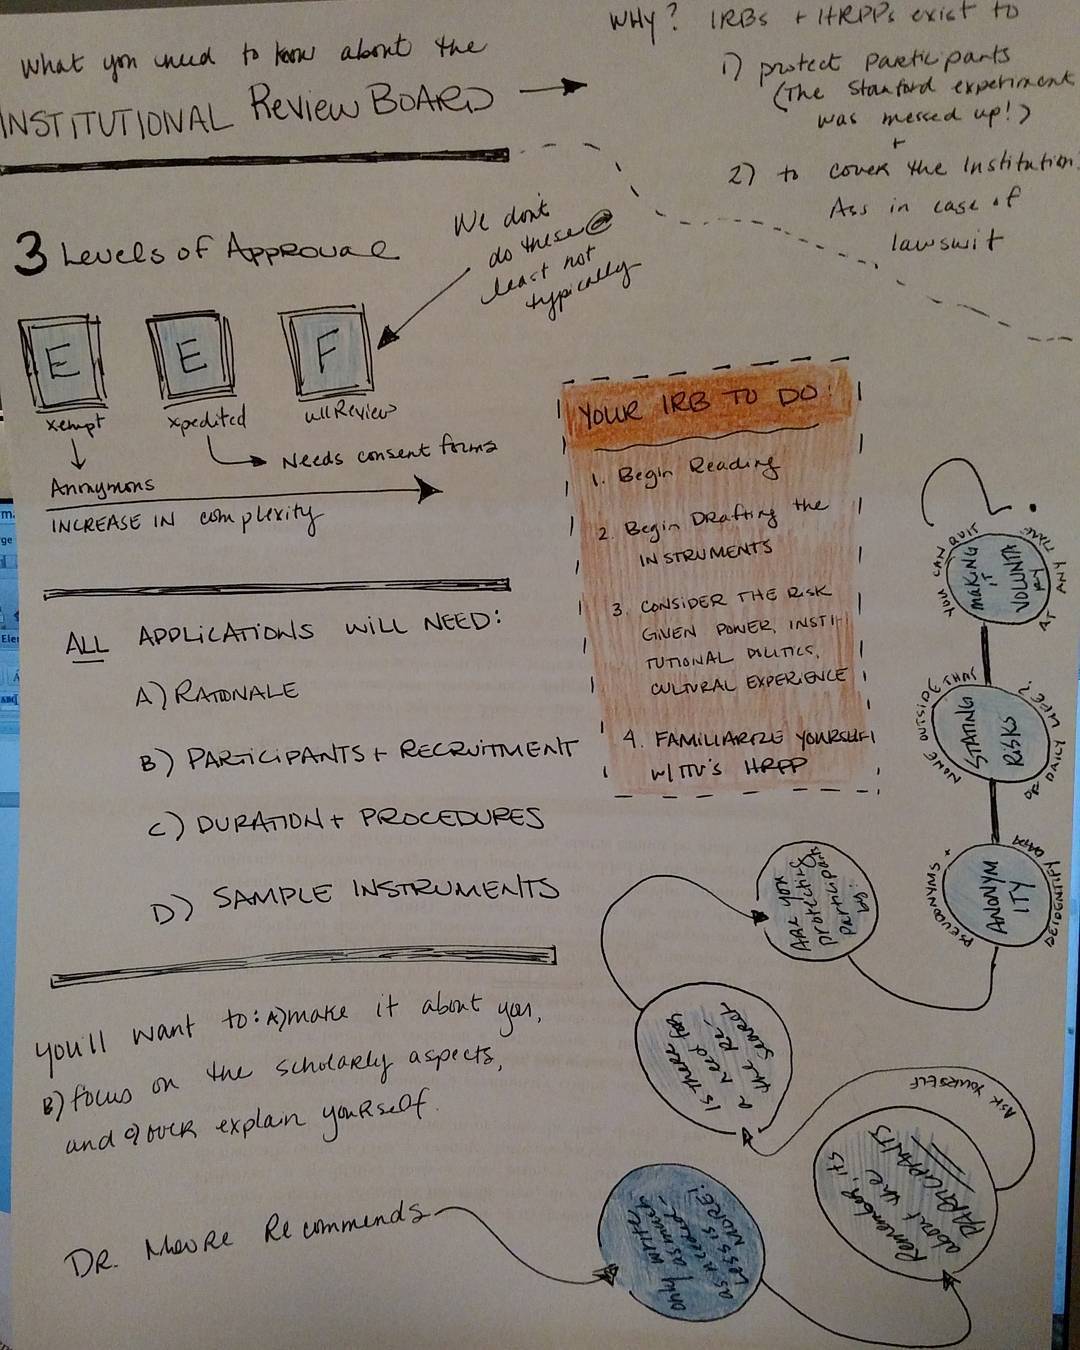 What you need to know about the
INSTITUTIONAL Review BOARD
WHY? IRBs + HRPPs exist to
1) protect participants
(The Stanford experiment
was messed up!)
+
2) to cover the Institution
Ass in case of
lawsuit
3 Levels of Approval
We don't
do these @
least not
typically
E E F
xempt xpedited ull Review
Needs consent forms
Anonymous
INCREASE IN complexity
YOUR IRB TO DO:
1. Begin Reading
2. Begin Drafting the
INSTRUMENTS
3. CONSIDER THE RISK
GIVEN POWER, INSTI
TUTIONAL POLITICS,
CULTURAL EXPERIENCE
4. FAMILIARIZE YOURSELF
w/ TTU's HRPP
ALL APPLICATIONS WILL NEED:
A) RATIONALE
B) PARTICIPANTS + RECRUITMENT
C) DURATION + PROCEDURES
D) SAMPLE INSTRUMENTS
You'll want to: A) make it about you,
B) focus on the scholarly aspects,
and c) over explain yourself.
Dr. Moore Recommends
only write
as much
as needed.
LESS IS
MORE!
Remember, it's
about the
PARTICIPANTS
ASK YOURSELF
Is there
a need for
the re-
search
Are you
protecting
participants
by:
ANONYM
ITY
PSEUDONYMS +
DEIDENTIFY DATA
STATING
RISKS
NONE OUTSIDE THAT
OF DAILY LIFE?
MAKING
IT
VOLUNTA
RY
YOU CAN QUIT
AT ANY TIME